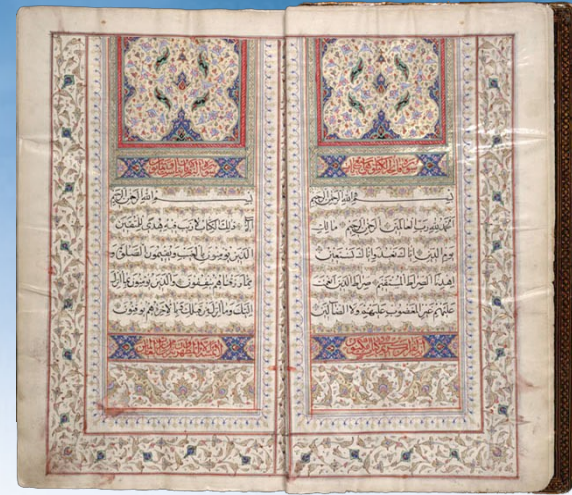 بسم الله الرحمن الرحيم
الحمد لله رب العالمين الرحمن الرحيم مالك
يوم الدين اياك نعبد واياك نستعين
اهدنا الصراط المستقيم صراط الذين انعمت
عليهم غير المغضوب عليهم ولا الضالين
انه لقرآن كريم في كتاب مكنون
بسم الله الرحمن الرحيم
الم ذلك الكتاب لا ريب فيه هدى للمتقين
الذين يؤمنون بالغيب ويقيمون الصلوة و
مما رزقناهم ينفقون والذين يؤمنون بما انزل
اليك وما انزل من قبلك وبالاخرة هم يوقنون
لا يمسه الا المطهرون تنزيل من رب العالمين